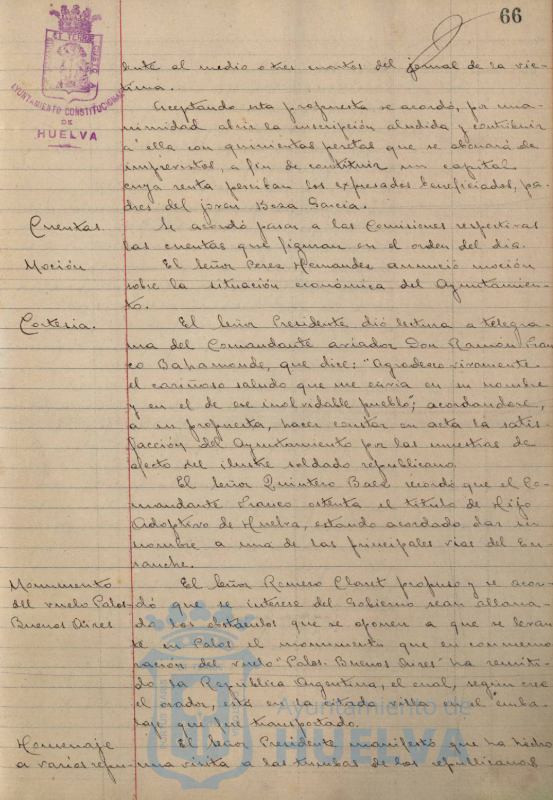 66
AYUNTAMIENTO CONSTITUCIONAL
DE
HUELVA
dente al medio o tres cuartos del jornal de la víc-
tima.
Aceptando esta propuesta se acordó, por una-
nimidad abrir la inscripción aludida y contribuir
a ella con quinientas pesetas que se abonará de
imprevistos, a fin de contituir un capital
cuya renta perciban los expresados beneficiados, pa-
dres del joven Beza García.
Cuentas. Se acordó pasar a las Comisiones respectivas
las cuentas que figuran en el orden del día.
Moción El Señor Perez Hernandez anunció moción
sobre la situación económica del Ayuntamien-
to.
Cortesía. El Señor Presidente dió lectura a telegra-
ma del Comandante aviador Don Ramón Fran-
co Bahamonde, que dice: "Agradezco vivamente
el cariñoso saludo que me envia en su nombre
y en el de ese inolvidable pueblo"; acordandose,
a su propuesta, hacer constar en acta la satis-
facción del Ayuntamiento por las muestras de
afecto del ilustre soldado republicano.
El Señor Quintero Baez recordó que el Co-
mandante Franco ostenta el titulo de Hijo
Adoptivo de Huelva, estando acordado dar su
nombre a una de las principales vias del En-
sanche.
Monumento El Señor Romero Claret propuso y se acor-
del vuelo Palos- dó que se interese del Gobierno sean allana-
Buenos Aires dos los obstáculos que se oponen a que se levan-
te en Palos el monumento que en conmemo-
ración del vuelo "Palos-Buenos Aires" ha remiti-
do la Republica Argentina, el cual, según cree
el orador, está en la citada villa en el emba-
laje que fué transportado.
Homenaje El Señor Presidente manifestó que ha hecho
a varios repu- una visita a las tumbas de los republicanos
Ayuntamiento de
HUELVA